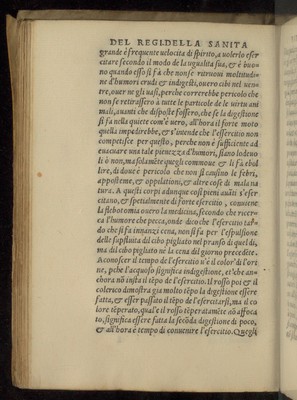 DEL REGI. DELLA SANITA
grande è frequente uelocita di spirito, a uolerlo eser
citare secondo il modo de la ugualita sua, & è buo
no quando esso si fa che non se ritruoui moltitudi=
ne d'humori crudi & indigesti, ouero cibi nel uen=
tre, ouer ne gli uasi, perche correrebbe pericolo che
non se retirassero a tutte le particole de le uirtu ani
mali, auanti che disposte fossero, che se la digestione
si fa nella quiete com'è uero, all'hora il forte moto
quella impedirebbe, & s'intende che l'essercitio non
competisce per questo, perche non è sufficiente ad
euacuare una tale pienezza d'humori, siano lodeuo
li ò non, ma solamẽte quegli commoue & li fa ebol
lire, di doue è pericolo che non si causino le febri,
apposteme, & oppelationi, & altre cose di mala na
tura. A questi corpi adunque cosi pieni auãti s'esser
citano, & spetialmente di forte esercitio, conuiene
la flebotomia ouero la medicina, secondo che ricerc
ca l'humore che pecca, onde dico che l'essercitio tal=
do che si fa innanzi cena, non si fa per l'espulsione
delle supfluita del cibo pigliato nel pranso di quel di,
ma dil cibo pigliato ne la cena dil giorno precedẽte.
A conoscer il tempo de l'esercitio u'è il color' di l'ori
ne, pche l'acquoso significa indigestione, et'che an=
chora nõ insta il tẽpo de l'esercitio. Il rosso poi & il
colerico dimostra gia molto tẽpo la digestione essere
fatta, & esser passato il tẽpo de l'esercitarsi, ma il co
lore tẽperato, qual'e il rosso tẽperatamẽte nõ affoca
to, significa essere fatta la secõda digestione di poco,
& all'hora è tempo di conuenire l'esercitio. Quegli